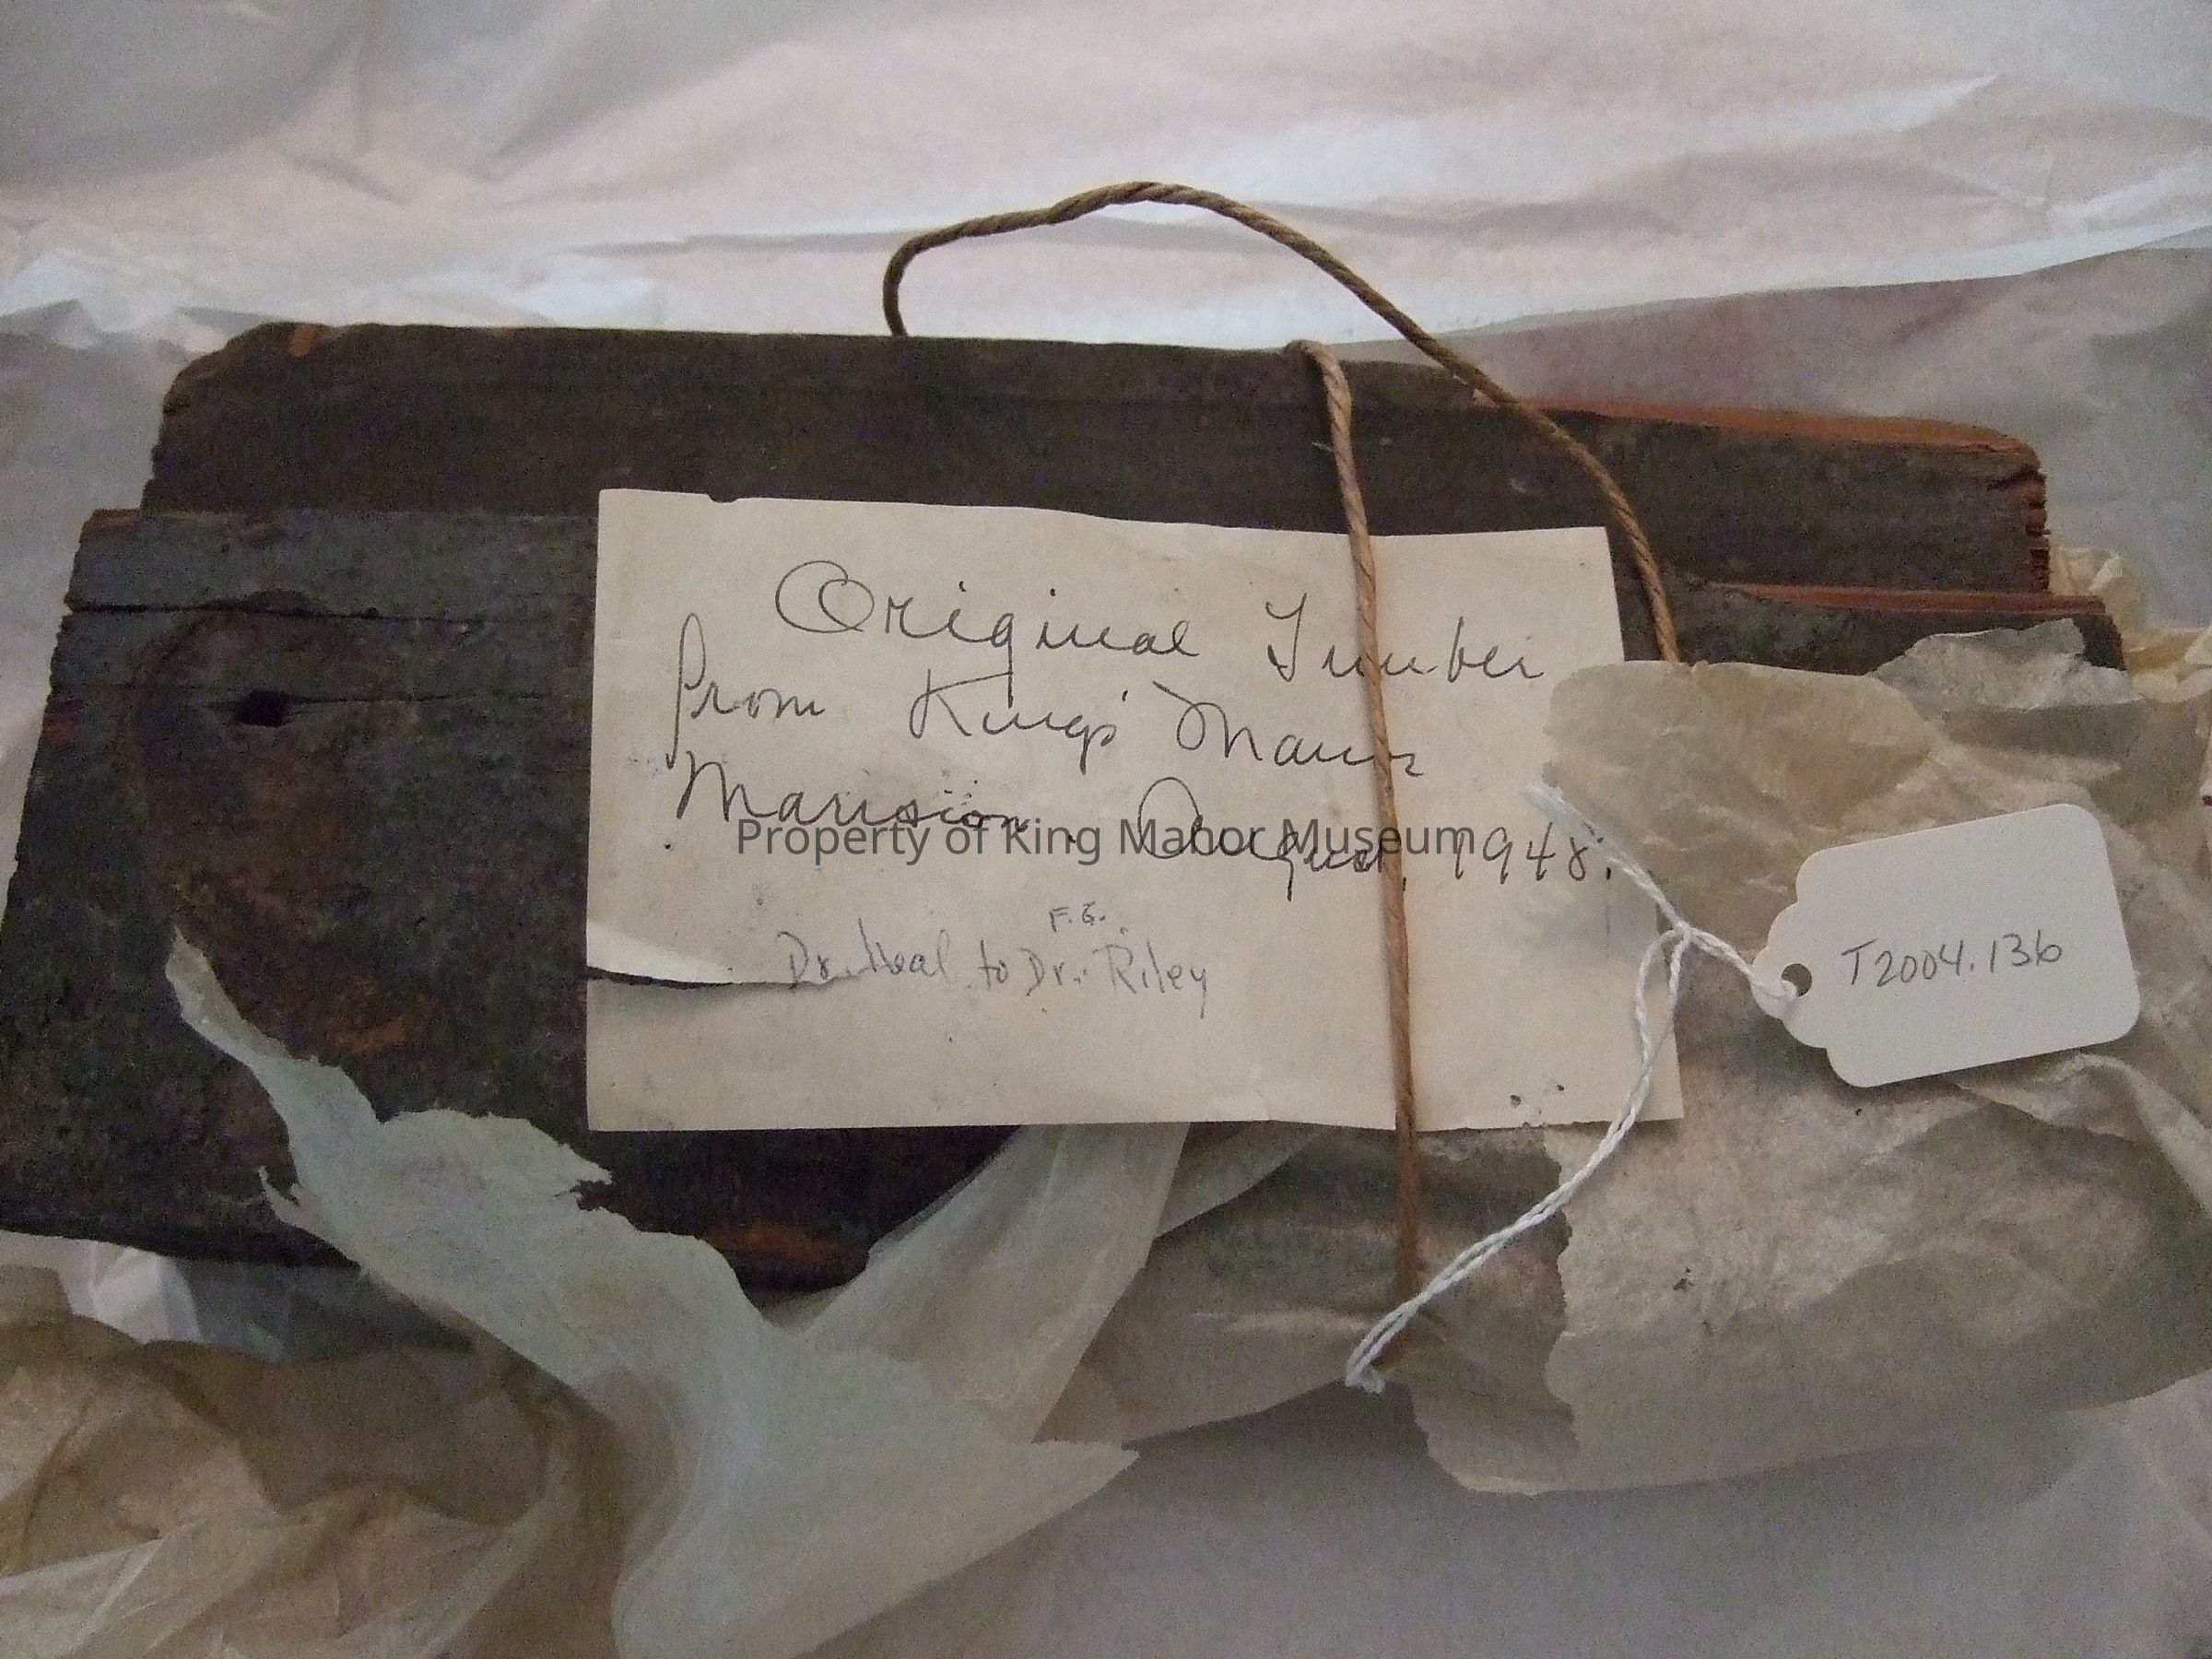 Original Timber
from King's Manor
Mansion. August, 1948.
Property of King Manor Museum
F.G.
Dr. Heal to Dr. Riley
T2004.136